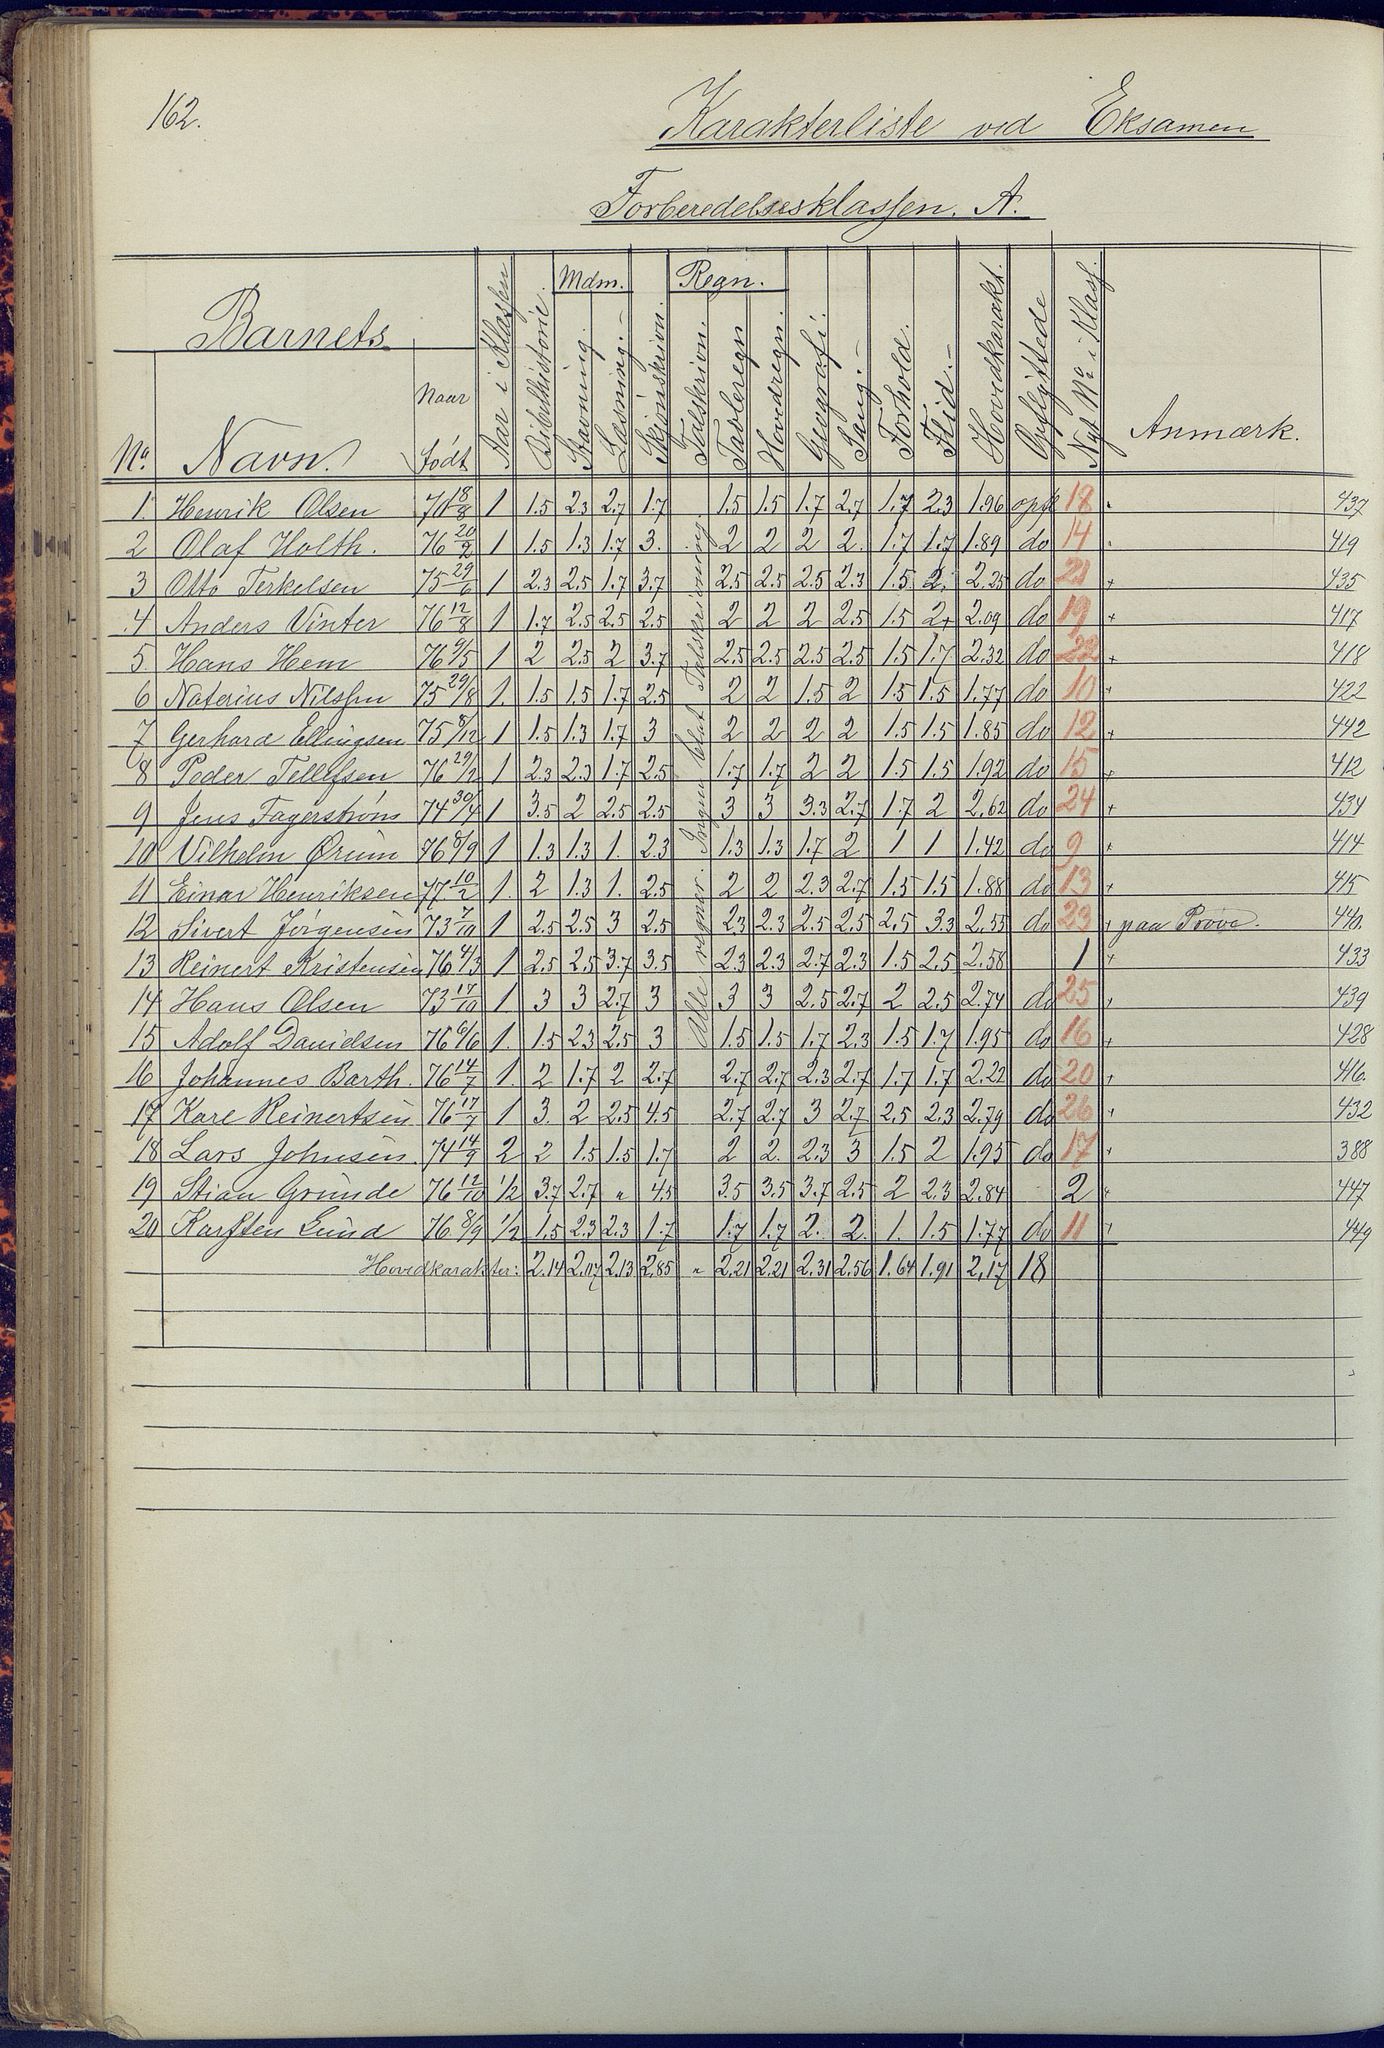 162.
Karakterliste ved Eksamen
Forberedelsesklassen. A.
Barnets
No. Navn. Naar Født Aar i Klassen Bibelhistorie. Mdm. Stavning. Læsning. Skjønskrivn. Regn. Talskrivn. Tavleregn Hovedregn. Geografi. Sang. Forhold. Flid. Hovedkarakt. Opflyttede Nyt No i Klass. Anmærk.
Alle regner. Ingen blot Talskrivning.
1. Henrik Olsen 70 18/8 1 1.5 2.3 2.7 1.7 1.5 1.5 1.7 2.7 1.7 2.3 1.96 opfl 18 437
2 Olaf Holth. 76 20/2 1 1.5 1.3 1.7 3. 2 2 2 2. 1.7 1.7 1.89 do 14 419
3 Otto Terkelsen 75 29/6 1 2.3 2.5 1.7 3.7 2.5 2.5 2.5 2.3 1.5 2. 2.25 do 21 + 435
4 Anders Vinter 76 12/8 1 1.7 2.5 2.5 2.5 2 2 2 2.5 1.5 2+ 2.09 do 19 + 417
5. Hans Hem 76 6/5 1 2 2.5 2 3.7 2.5 2.5 2.5 2.5 1.5 1.7 2.32 do 22 + 418
6 Naterius Nilssen 75 29/8 1. 1.5 1.5 1.7 2.5 2 2 1.5 2 1.5 1.5 1.77 do 10 + 422
7 Gerhard Ellingsen 75 8/12 1 1.5 1.3 1.7 3 2 2 2 2 1.5 1.5 1.85 do 12 + 442
8 Peder Tellefsen 76 29/2 1 2.3 2.3 1.7 2.5 1.7 1.7 2 2 1.5 1.5 1.92 do 15 + 412
9 Jens Fagerstrøm 74 30/4 1 3.5 2 2.5 2.5 3 3 3.3 2.7 1.7 2 2.62 do 24 + 434
10 Vilhelm Ørum 76 8/9 1 1.3 1.3 1. 2.3 1.3 1.3 1.7 2 1 1 1.42 do 9 + 414
11 Einar Henriksen 77 10/2 1. 2 1.3 1. 2.5 2 2 2.3 2.7 1.5 1.5 1.88 do 13 + 415
12 Sivert Jørgensen 73 7/10 1 2.5 2.5 3 2.5 2.3 2.3 2.5 2.5 2.5 3.3 2.55 do 23 + paa Prøve. 440.
13 Reinert Kristensen 76 4/3 1 2.5 2.5 3.7 3.5 2.3 2.3 2.7 2.3 1.5 2.5 2.58 1 + 433
14 Hans Olsen 73 17/10 1. 3 3 2.7 3 3 3 2.5 2.7 2 2.5 2.74 do 25 + 439
15 Adolf Danielsen 76 6/6 1. 1.5 2.3 2.5 3 1.5 1.5 1.7 2.3 1.5 1.7 1.95 do 16 + 428
16 Johannes Barth. 76 14/7 1. 2 1.7 2 2.7 2.7 2.7 2.3 2.7 1.7 1.7 2.22 do 20 + 416.
17 Karl Reinertsen 76 17/7 1 3. 2 2.5 4.5 2.7 2.7 3 2.7 2.5 2.3 2.79 do 26 + 432
18 Lars Johnsen. 74 14/9 2 2 1.5 1.5 1.7 2 2. 2.3 3 1.5 2 1.95 do 17 + 388
19 Stian Grunde 76 12/10 1/2 3.7 2.7 " 4.5 3.5 3.5 3.7 2.5 2 2.3 2.84 2 + 447
20 Karsten Lund 76 8/9 1/2 1.5 2.3 2.3 1.7 1.7 1.7 2. 2. 1. 1.5 1.77 do 11 + 449
Hovedkarakter: 2.14 2.07 2.13 2.85 " 2.21 2.21 2.31 2.56 1.64 1.91 2.17 18